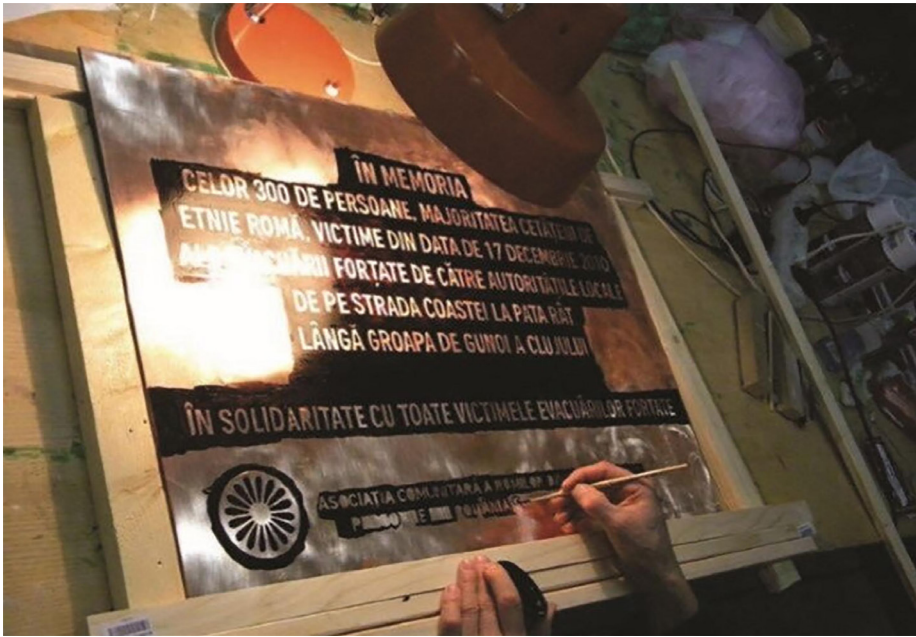 ÎN MEMORIA
CELOR 300 DE PERSOANE, MAJORITATEA CETĂȚENI DE
ETNIE ROMĂ, VICTIME DIN DATA DE 17 DECEMBRIE 2010
ALE EVACUĂRII FORȚATE DE CĂTRE AUTORITĂȚILE LOCALE
DE PE STRADA COASTEI LA PATA RÂT
LÂNGĂ GROAPA DE GUNOI A CLUJULUI
ÎN SOLIDARITATE CU TOATE VICTIMELE EVACUĂRILOR FORȚATE
ASOCIAȚIA COMUNITARĂ A ROMILOR